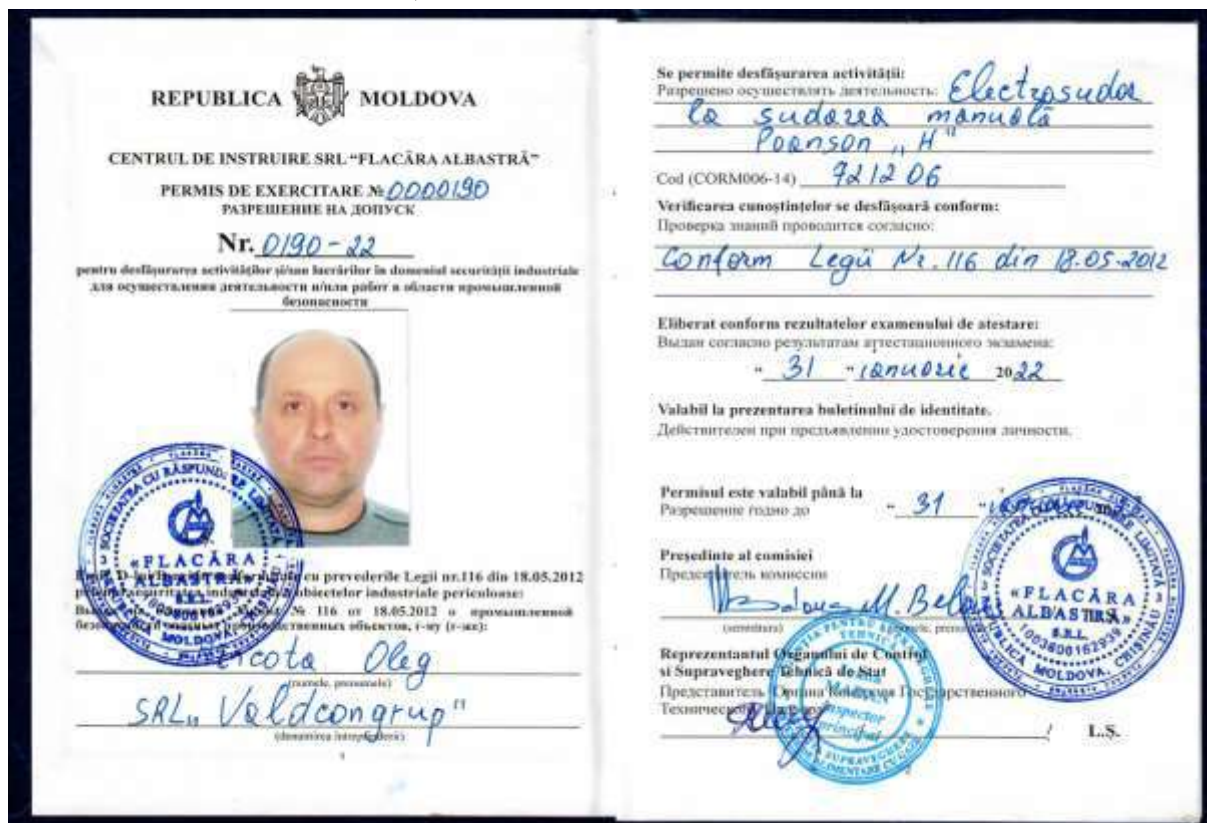 REPUBLICA MOLDOVA
CENTRUL DE INSTRUIRE SRL “FLACĂRA ALBASTRĂ”
PERMIS DE EXERCITARE № 0000190
РАЗРЕШЕНИЕ НА ДОПУСК
Nr. 0190-22
pentru desfășurarea activităților și/sau lucrărilor în domeniul securității industriale
для осуществления деятельности и/или работ в области промышленной
безопасности
SOCIETATEA CU RĂSPUNDERE LIMITATĂ
«FLACĂRA
ALBASTRĂ»
S.R.L.
cu prevederile Legii nr.116 din 18.05.2012
obiectelor industriale periculoase:
№ 116 от 18.05.2012 о промышленной
производственных объектов, г-ну (г-же):
Oleg
(numele, prenumele)
SRL „Valdcongrup"
(denumirea întreprinderii)
Se permite desfășurarea activității:
Разрешено осуществлять деятельность: Electrosudor
la sudarea manuală
Poanson „H"
Cod (CORM006-14) 721206
Verificarea cunoștințelor se desfășoară conform:
Проверка знаний проводится согласно:
Conform Legii Nr. 116 din 18.05.2012
Eliberat conform rezultatelor examenului de atestare:
Выдан согласно результатам аттестационного экзамена:
“ 31 ” ianuarie 2022
Valabil la prezentarea buletinului de identitate.
Действителен при предъявлении удостоверения личности.
Permisul este valabil până la
Разрешение годно до “ 31 ”
Președinte al comisiei
Председатель комиссии
(semnătura)
SOCIETATEA CU RĂSPUNDERE LIMITATĂ
«FLACĂRA
ALBASTRĂ»
S.R.L.
1003600162939
REPUBLICA MOLDOVA, CHIȘINĂU
Reprezentantul Organului de Control
si Supraveghere Tehnică de Stat
Представитель Органа Контроля Государственного
Технического
Inspector
principal
L.Ș.